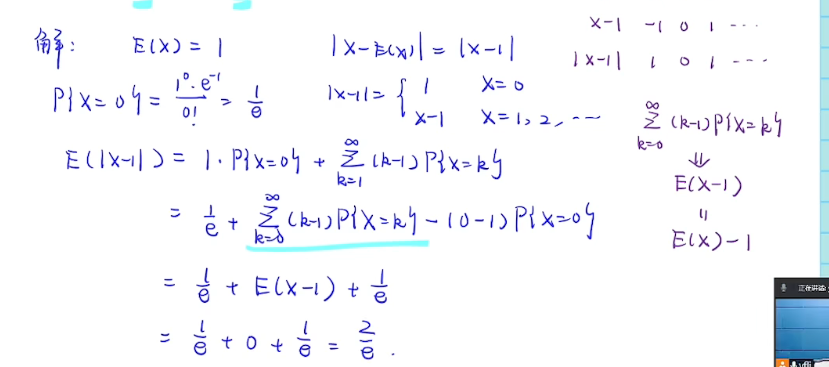 解: E(X) = 1 |X-E(X)| = |X-1|
P{X=0} = 1⁰·e⁻¹/0! = 1/e |X-1| = { 1 X=0
X-1 X=1,2,···
E(|X-1|) = 1·P{X=0} + ∑_{k=1}^{∞} (k-1)P{X=k}
= 1/e + ∑_{k=0}^{∞} (k-1)P{X=k} - (0-1)P{X=0}
= 1/e + E(X-1) + 1/e
= 1/e + 0 + 1/e = 2/e .
X-1 -1 0 1 ---
|X-1| 1 0 1 ---
∑_{k=0}^{∞} (k-1)P{X=k}
⇓
E(X-1)
=
E(X)-1
正在讲话: